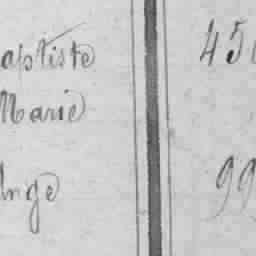 aptiste 45
Marie
Ange 99